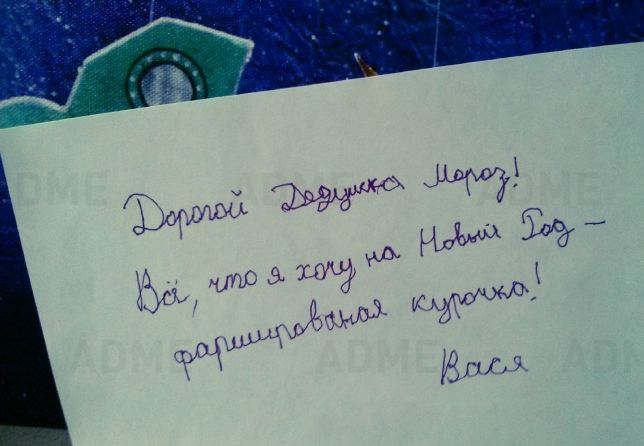 Дорогой Дедушка Мороз!
Всё, что я хочу на Новый Год –
фаршированая курочка!
Вася
ADME
ADME
ADME
ADME
ADME